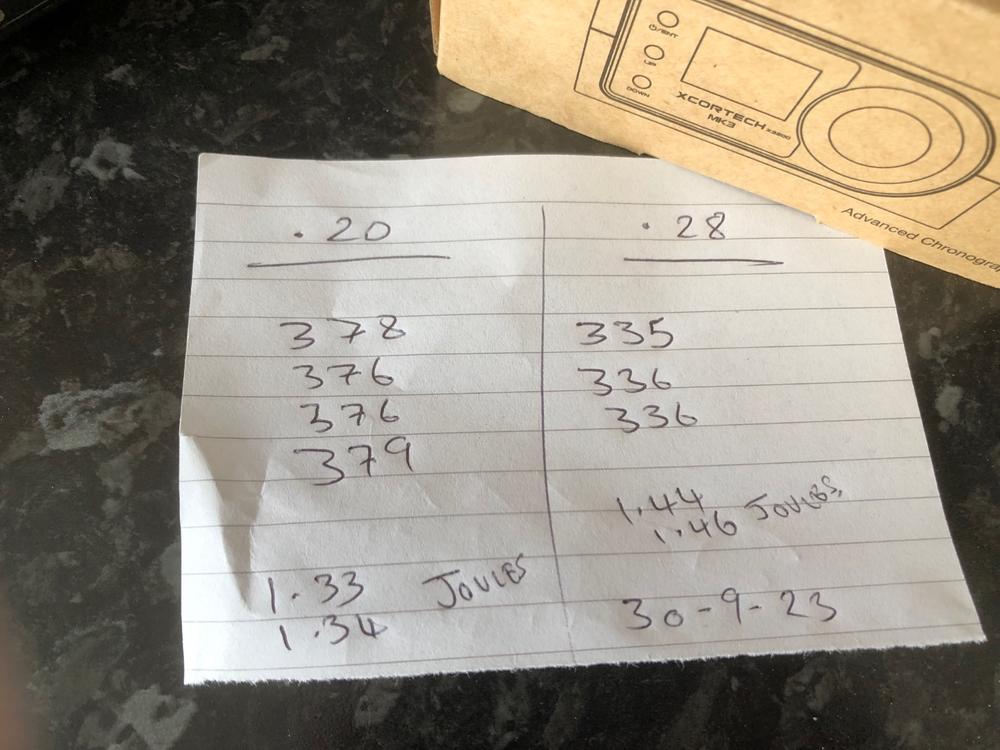 ⏻/ENT
UP
DOWN
XCORTECH X3200
MK3
Advanced Chronogra
.20
378
376
376
379
1.33 JOULES
1.34
.28
335
336
336
1.44
1.46 JOULES
30-9-23